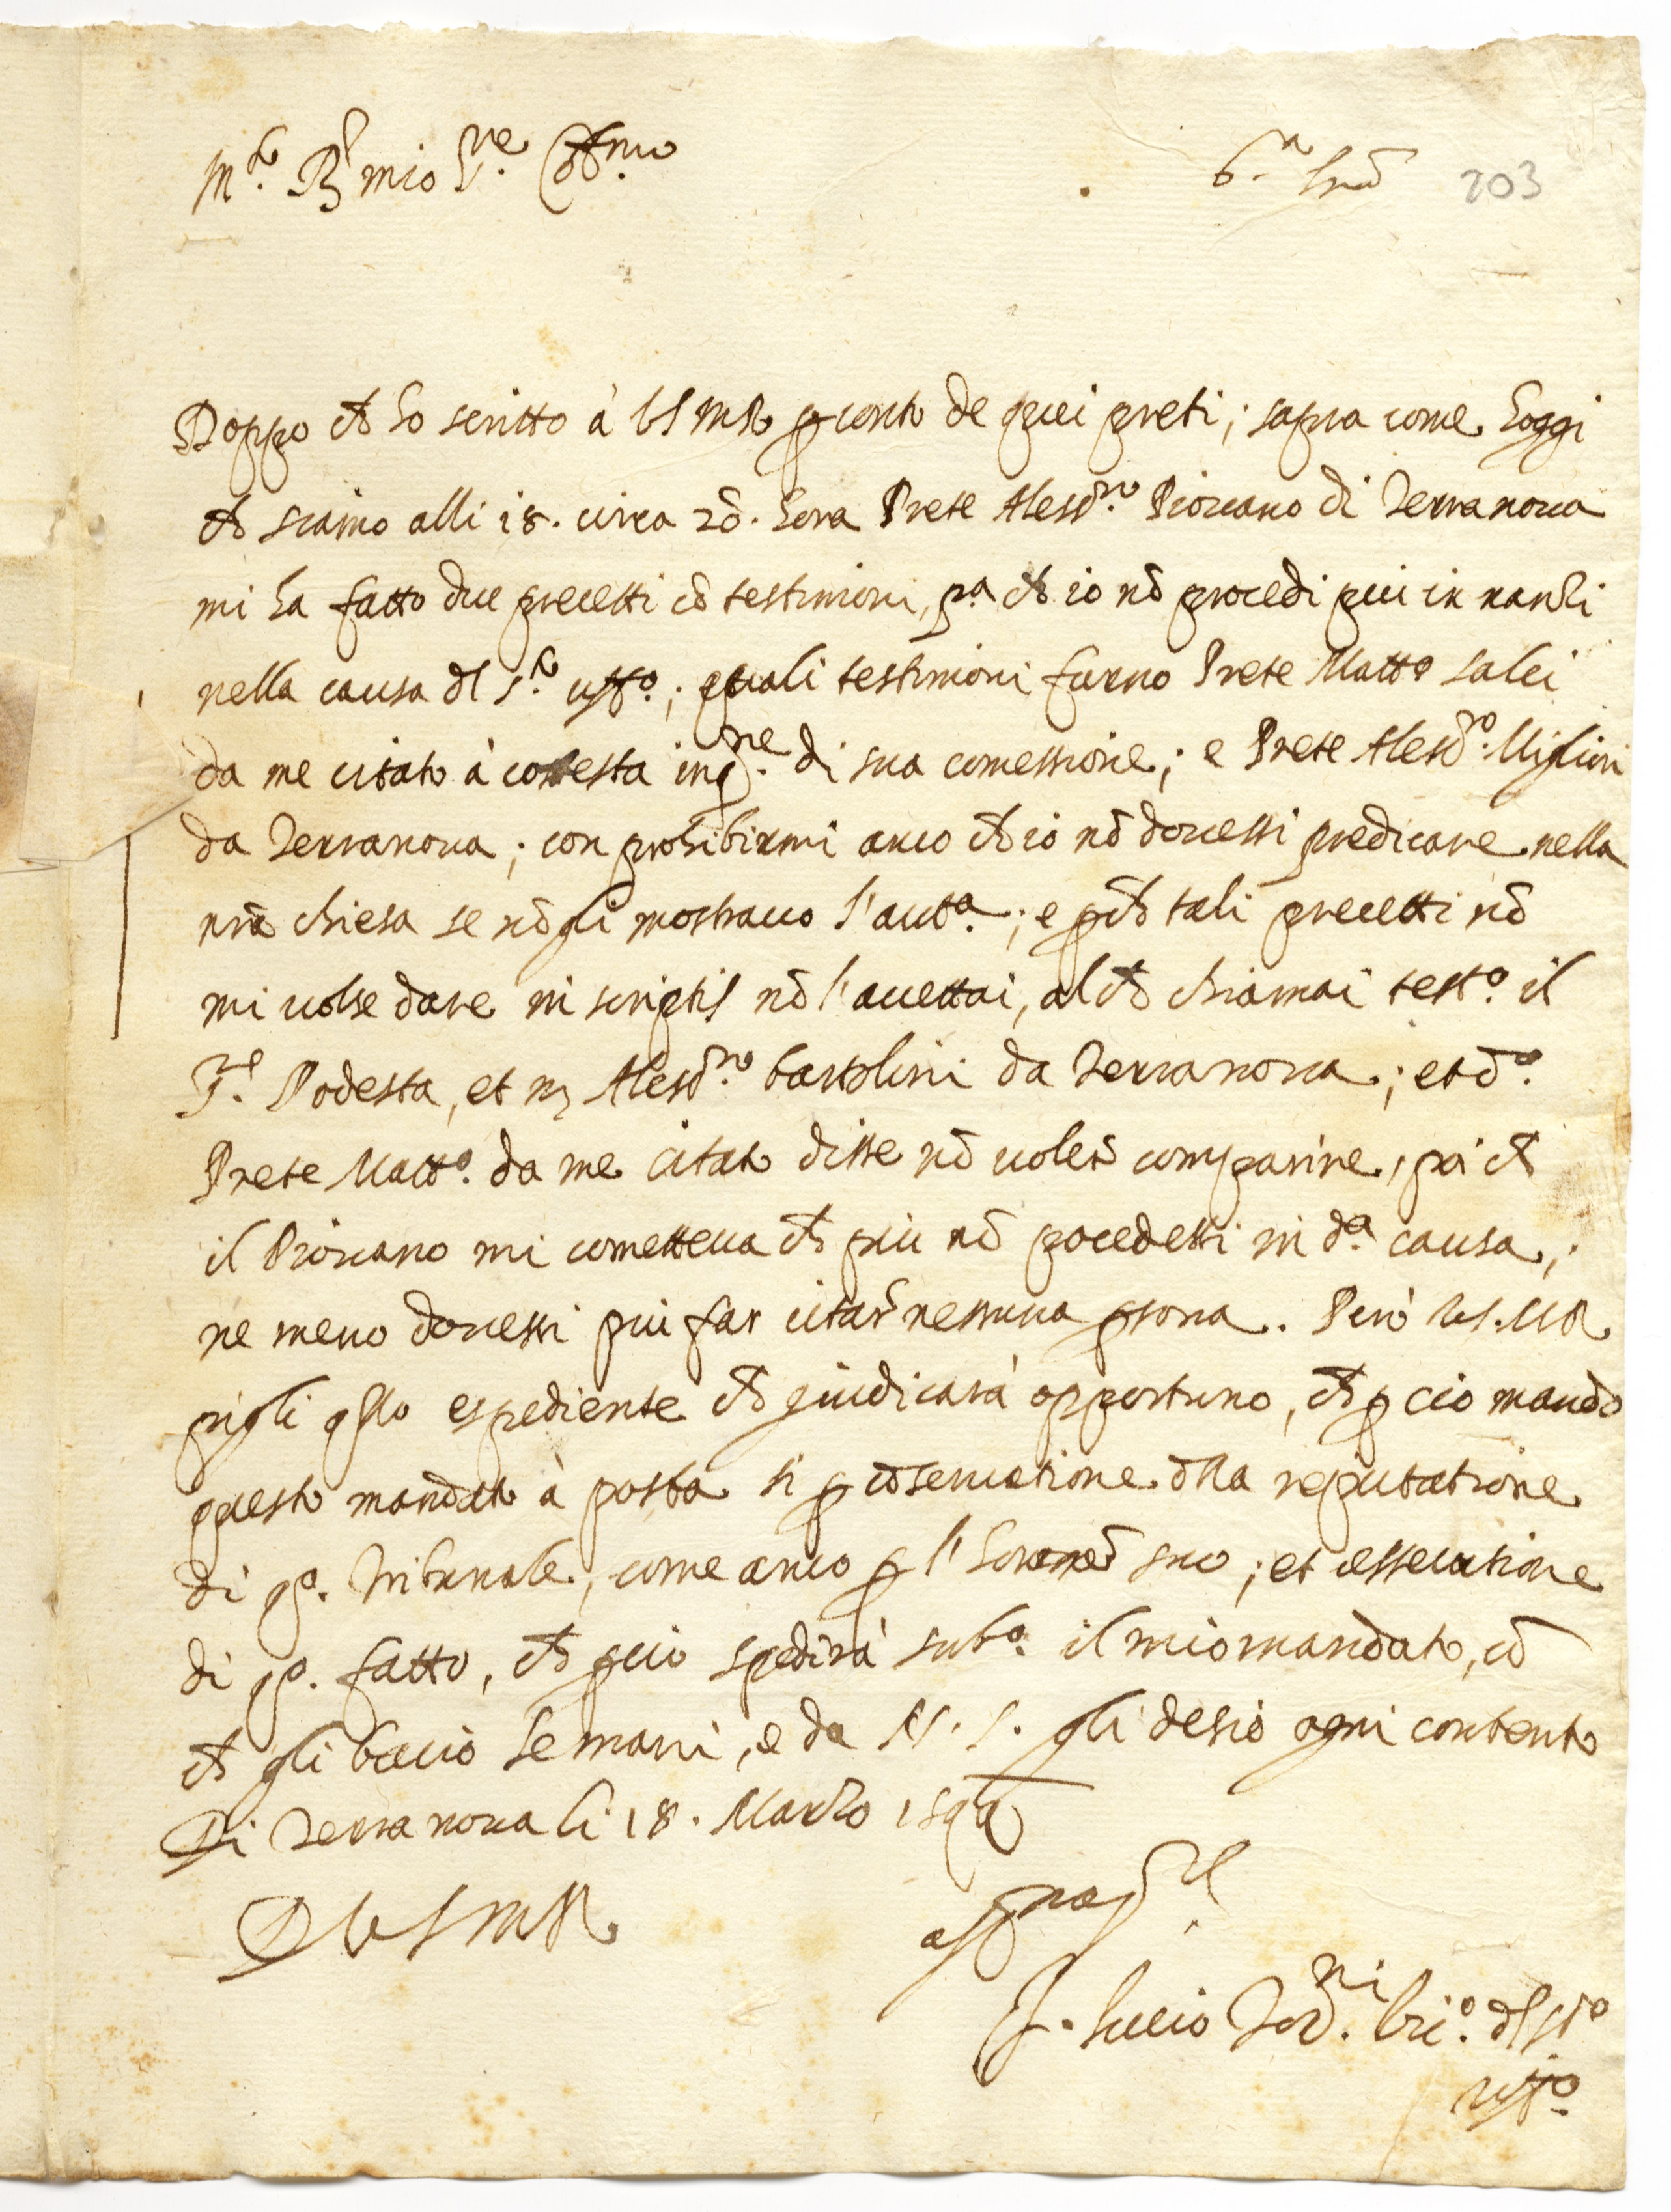 M.to R.do mio S.re Oss.mo
6.a 203
Doppo ch ho scritto à VS MR p conto de quei preti; saprà come hoggi
ch siamo alli 18. circa 20. hora Prete Aless.ro Piovano di Terranova
mi ha fatto due precetti cō testimoni, p.a ch io nō procedi più in nanzi
nella causa dl S.to uff.o; quali testimoni furno Prete Matt.o Salci
da me citato à cotesta inq.ne di sua comessione; e Prete Aless.ro Migliori
da Terranova; con prohibirmi anco ch io nō dovessi predicare nella
nrā chiesa se nō gli mostravo l'aut.a; e pch tali precetti nō
mi volse dare in scriptis nō l'accettai, al ch chiamai test.o il
S.r Podesta, et m Aless.ro bartolini da Terranova; et d.o
Prete Matt.o da me citato disse nō voler comparire, p.a ch
il Piovano mi cometteva ch più nō procedessi in d.a causa;
ne meno dovessi più far citar nessuna psona. Però VS.MR
pigli qllo espediente ch giudicarà opportuno, ch p ciò mando
questo mandato à posta sì p cōservatione dlla reputatione
di qo. tribunale, come anco p l' honor suo; et essecutione
di qo. fatto, ch pciò spedirà sub.o il mio mandato, cō
ch gli bacio le mani, e da N.S. gli desio ogni contento
Di Terranova li 18. Marzo
D VS MR
F. Lucio
uff.o